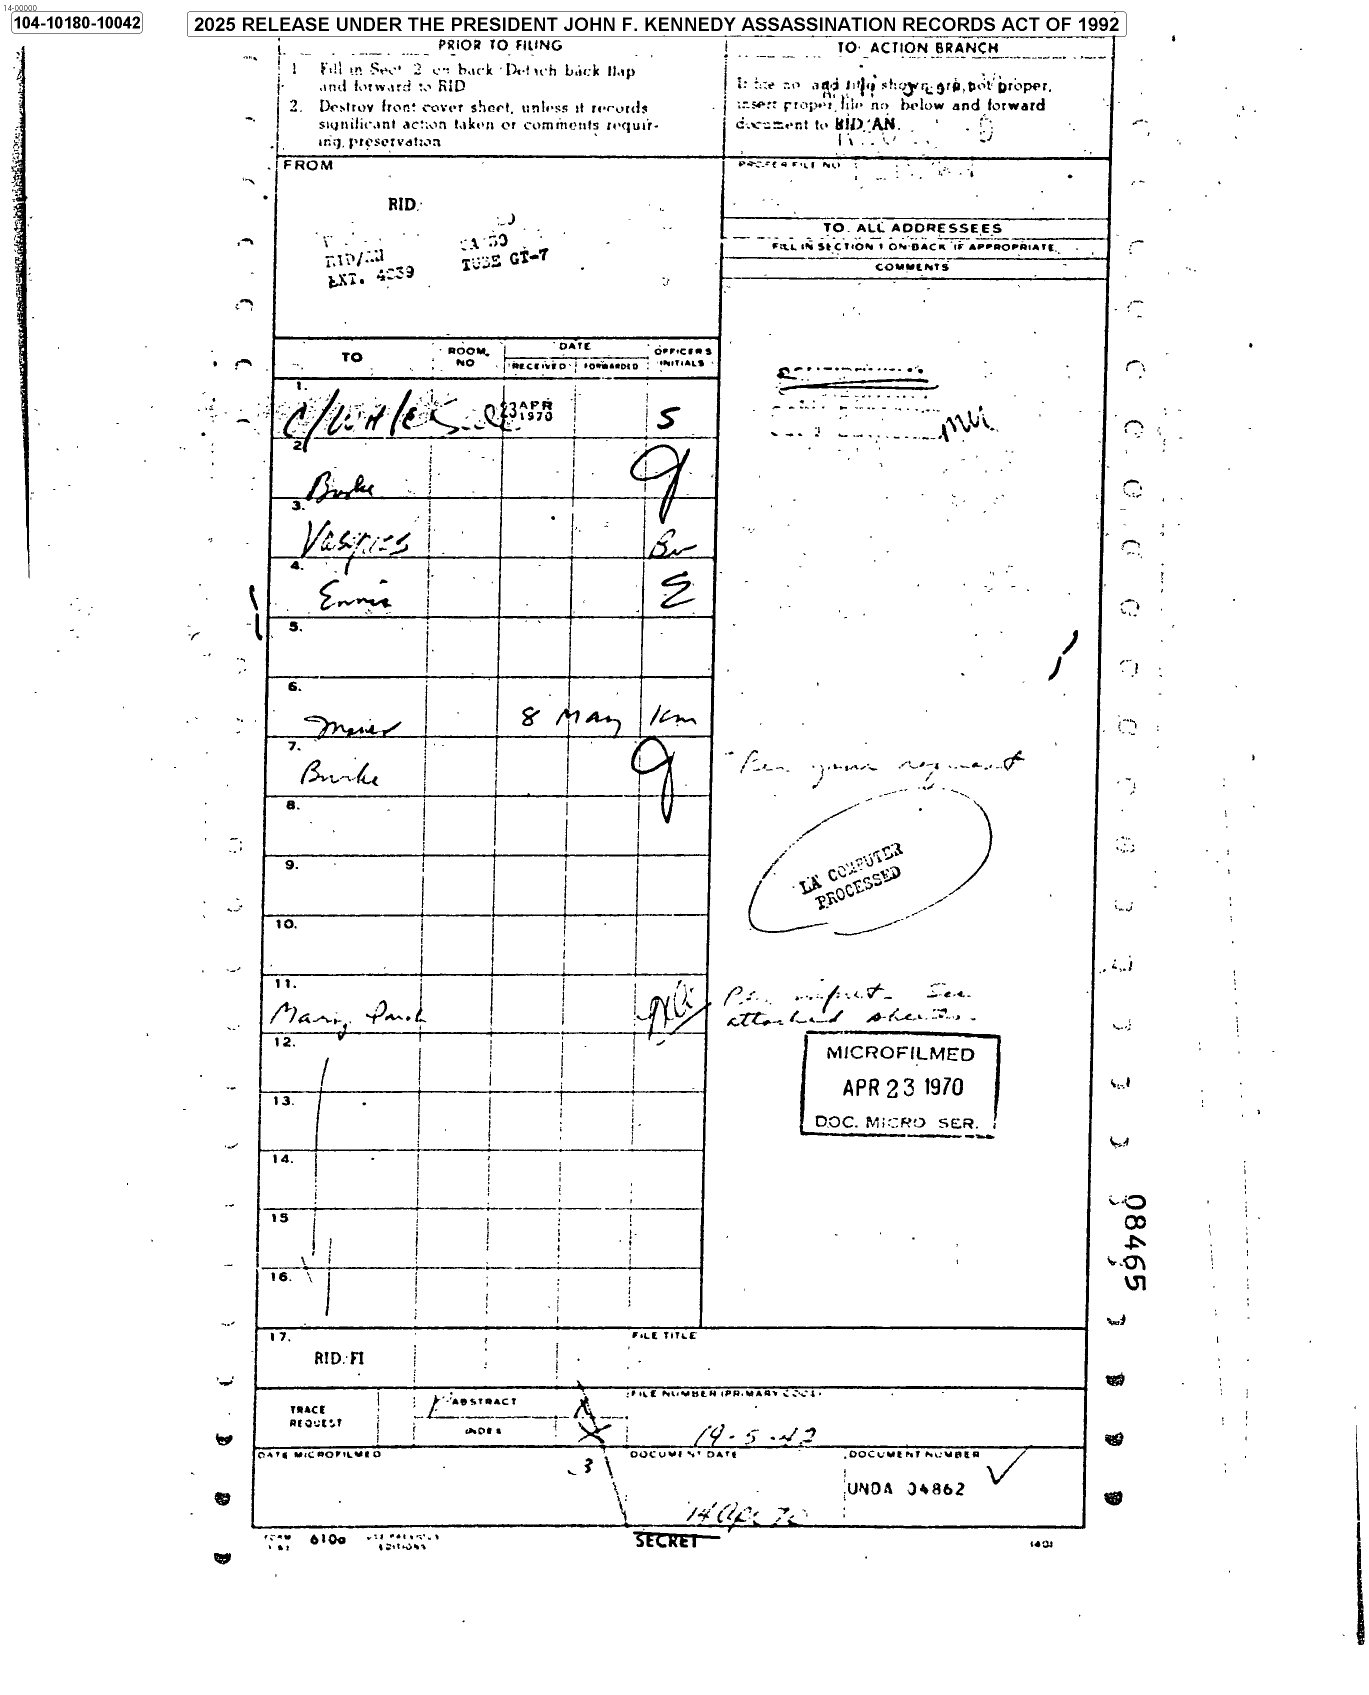 14-00000
104-10180-10042
2025 RELEASE UNDER THE PRESIDENT JOHN F. KENNEDY ASSASSINATION RECORDS ACT OF 1992
PRIOR TO FILING
1 Fill in Sect. 2 on back. Detach back flap
and forward to RID
2. Destroy front cover sheet, unless it records
significant action taken or comments requir-
ing preservation
TO: ACTION BRANCH
If file no. and title shown are not proper,
insert proper file no. below and forward
document to RID/AN.
FROM
RID
RID/AN
EXT. 4839
TUBE GT-7
PROPER FILE NO
TO: ALL ADDRESSEES
FILL IN SECTION 1 ON BACK IF APPROPRIATE
COMMENTS
TO
ROOM
NO
DATE
RECEIVED
FORWARDED
OFFICER'S
INITIALS
1.
23 APR
1970
S
2.
Burke
3.
Vasques
Bu
4.
Ennis
E
5.
6.
8 May
Km
7.
Burke
Per your request
8.
LA COMPUTER
PROCESSED
9.
10.
11.
Per request. See
attached sheets.
12.
MICROFILMED
APR 23 1970
DOC. MICRO. SER.
13.
14.
15
16.
08465
17.
RID/FI
FILE TITLE
TRACE
REQUEST
ABSTRACT
INDEX
FILE NUMBER (PRIMARY CODE)
19-5-42
DATE MICROFILMED
3
DOCUMENT DATE
14 Apr 70
DOCUMENT NUMBER
UNDA 04862
FORM 610a USE PREVIOUS
EDITIONS
SECRET
(40)